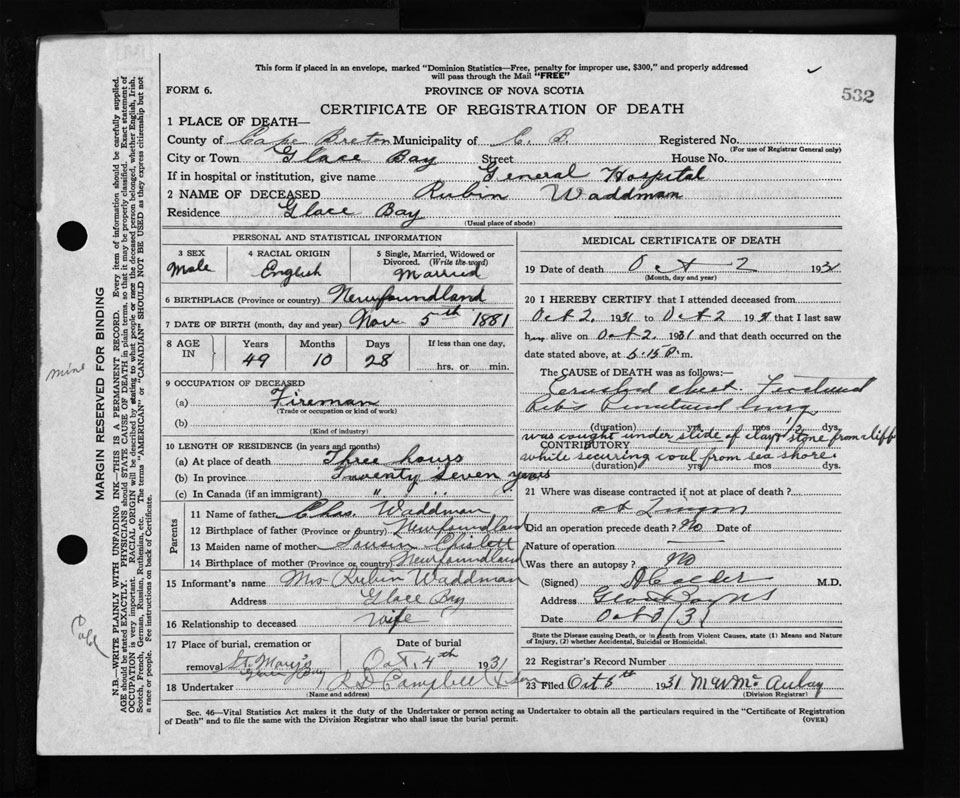 This form if placed in an envelope, marked "Dominion Statistics—Free, penalty for improper use, $300," and properly addressed
will pass through the Mail "FREE"
FORM 6.
PROVINCE OF NOVA SCOTIA
532
CERTIFICATE OF REGISTRATION OF DEATH
1 PLACE OF DEATH—
County of Cape Breton Municipality of C. B. Registered No.
(For use of Registrar General only)
City or Town Glace Bay Street House No.
If in hospital or institution, give name General Hospital
2 NAME OF DECEASED Rubin Waddman
Residence Glace Bay
(Usual place of abode)
PERSONAL AND STATISTICAL INFORMATION
3 SEX
Male
4 RACIAL ORIGIN
English
5 Single, Married, Widowed or
Divorced. (Write the word)
Married
6 BIRTHPLACE (Province or country) Newfoundland
7 DATE OF BIRTH (month, day and year) Nov. 5th 1881
8 AGE IN
Years Months Days If less than one day,
49 10 28 hrs. or min.
9 OCCUPATION OF DECEASED
(a) Fireman
(Trade or occupation or kind of work)
(b)
(Kind of industry)
10 LENGTH OF RESIDENCE (in years and months)
(a) At place of death Three hours
(b) In province Twenty Seven years
(c) In Canada (if an immigrant) " "
Parents
11 Name of father Chas. Waddman
12 Birthplace of father (Province or country) Newfoundland
13 Maiden name of mother Chislett
14 Birthplace of mother (Province or country) Newfoundland
15 Informant's name Mrs Rubin Waddman
Address Glace Bay
16 Relationship to deceased Wife
17 Place of burial, cremation or
removal St. Mary's
Glace Bay
Date of burial
Oct. 4th 1931
18 Undertaker R D Campbell & Son
(Name and address)
MEDICAL CERTIFICATE OF DEATH
19 Date of death Oct 2 1931
(Month, day and year)
20 I HEREBY CERTIFY that I attended deceased from
Oct 2. 1931 to Oct 2 1931 that I last saw
him alive on Oct 2. 1931 and that death occurred on the
date stated above, at 5.15 P. m.
The CAUSE OF DEATH was as follows:—
Crushed chest. Fractured
Ribs Punctured lung
(duration) yrs. mos. dys.
was caught under slide of clay & stone from cliff
CONTRIBUTORY
while securing coal from sea shore.
(duration) yrs. mos. dys.
21 Where was disease contracted if not at place of death?
at Lingan
Did an operation precede death? No Date of
Nature of operation
Was there an autopsy? No
(Signed) Calder M.D.
Address Glace Bay NS
Date Oct 3/31
State the Disease causing Death, or in death from Violent Causes, state (1) Means and Nature
of Injury, (2) whether Accidental, Suicidal or Homicidal.
22 Registrar's Record Number
23 Filed Oct 5th 1931
(Division Registrar)
Sec. 46—Vital Statistics Act makes it the duty of the Undertaker or person acting as Undertaker to obtain all the particulars required in the "Certificate of Registration
of Death" and to file the same with the Division Registrar who shall issue the burial permit.
(OVER)
MARGIN RESERVED FOR BINDING
mine
N.B.—WRITE PLAINLY WITH UNFADING INK—THIS IS A PERMANENT RECORD. Every item of information should be carefully supplied.
AGE should be stated EXACTLY. PHYSICIANS should STATE CAUSE OF DEATH in plain terms, so that it may be properly classified. Exact statement of
OCCUPATION is very important. RACIAL ORIGIN will be described by stating to what people or race the deceased person belonged, whether English, Irish,
Scotch, French, German, Russian, Ruthenian, etc. The terms "AMERICAN" or "CANADIAN" SHOULD NOT BE USED as they express citizenship but not
a race or people. See instructions on back of Certificate.